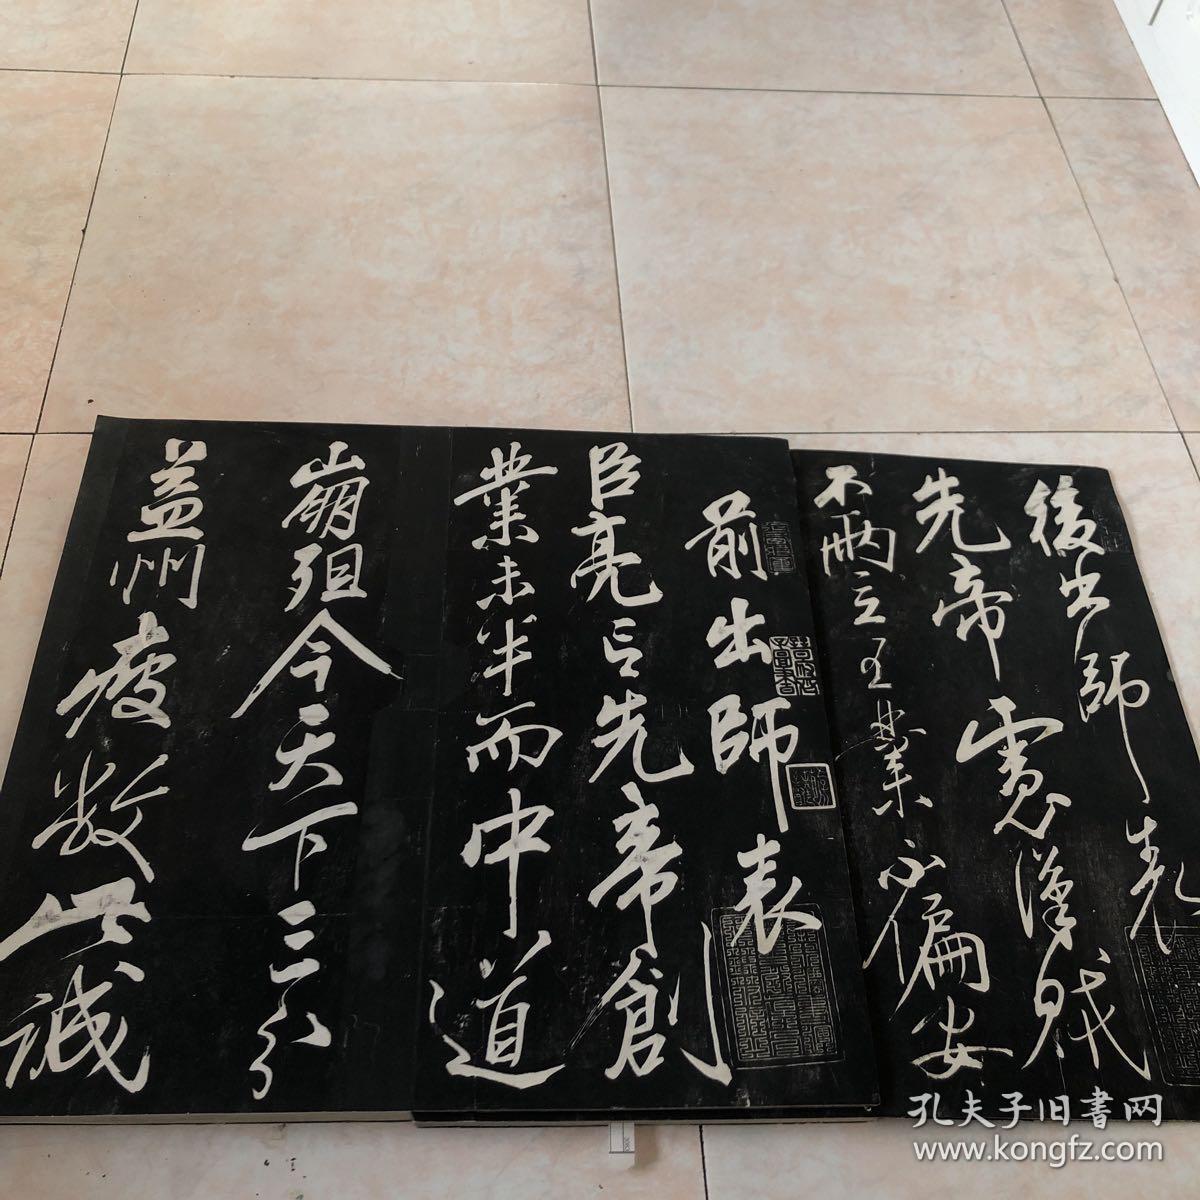 後出師
先
先帝慮漢賊
不兩立王業不偏安
前出師表
臣亮言先帝創
業未半而中道
崩殂今天下三分
益州疲敝此誠
孔夫子旧書网
www.kongfz.com